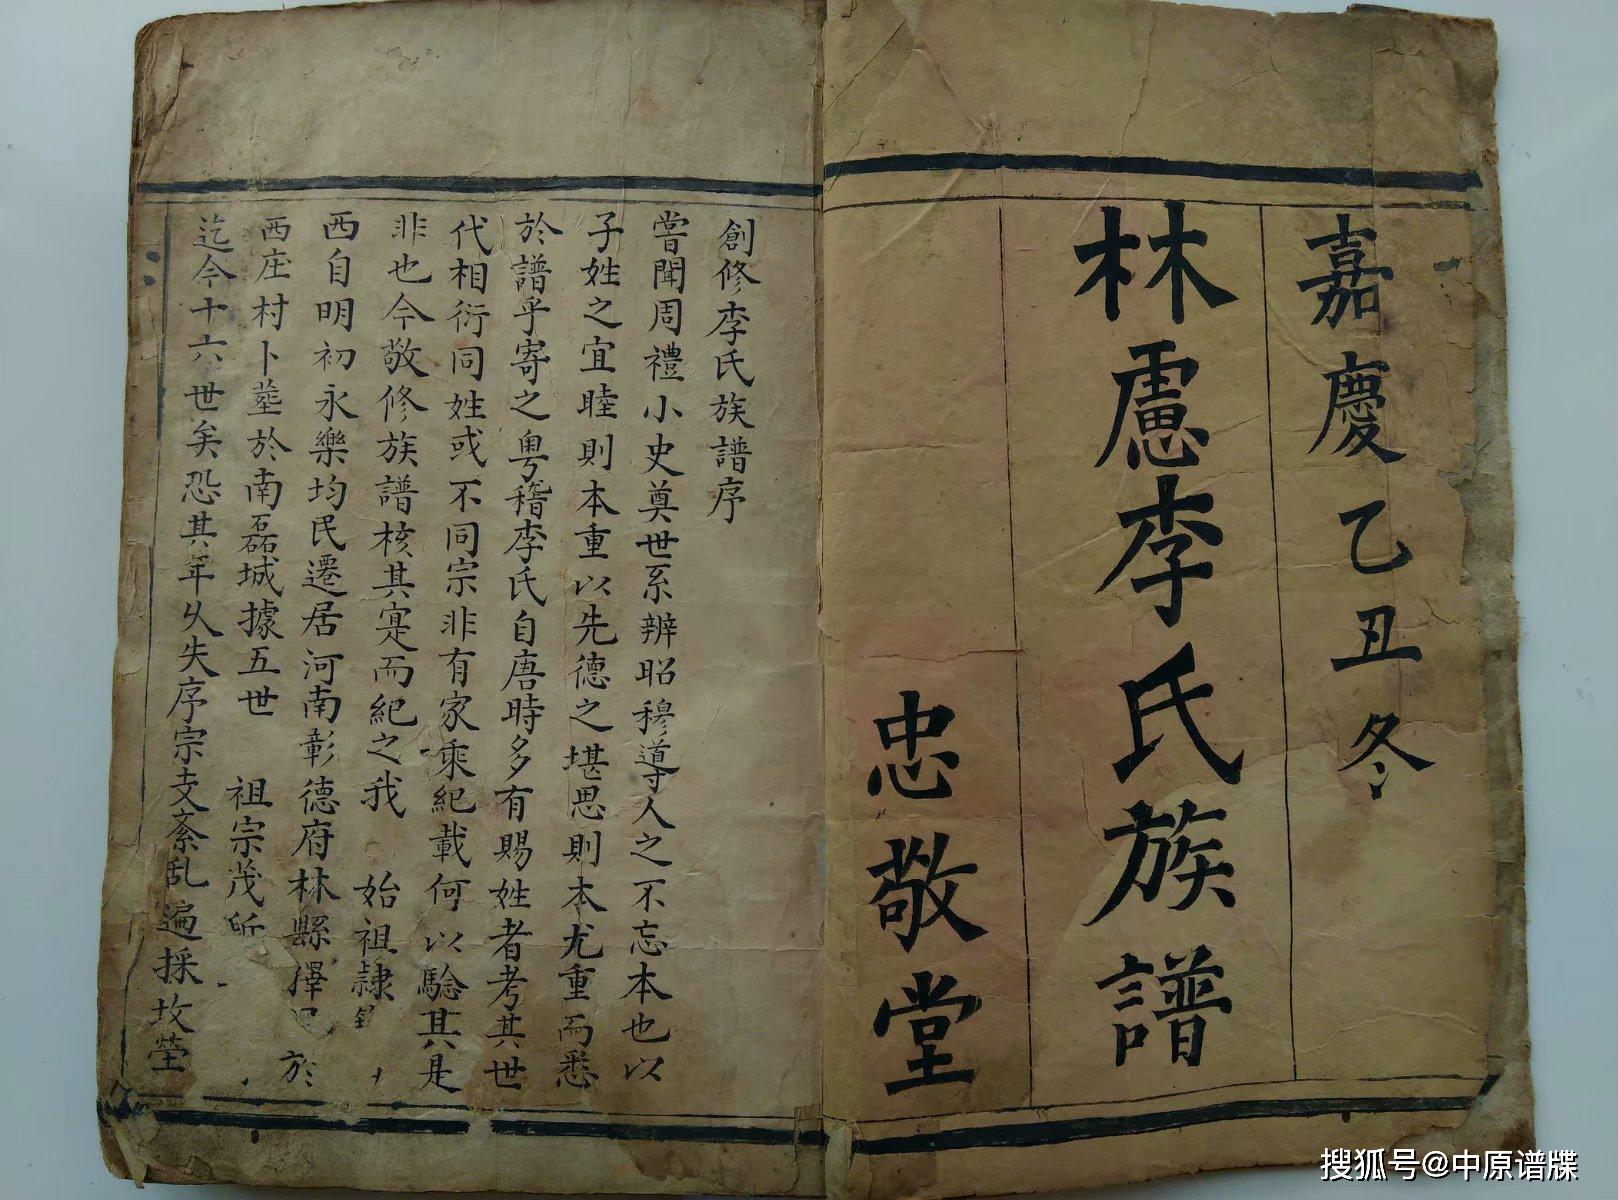 嘉慶乙丑冬
林慮李氏族譜
忠敬堂
創修李氏族譜序
嘗聞周禮小史奠世系辨昭穆導人之不忘本也以
子姓之宜睦則本重以先德之堪思則本尤重而悉
於譜乎寄之粤稽李氏自唐時多有賜姓者考其世
代相衍同姓或不同宗非有家乘紀載何以驗其是
非也今敬修族譜核其寔而紀之我 始祖隷
西自明初永樂均民遷居河南彰德府林縣擇 於
西庄村卜塋於南磊城據五世 祖宗茂所
迄今十六世矣恐其年久失序宗支紊乱遍採坟塋
搜狐号@中原谱牒